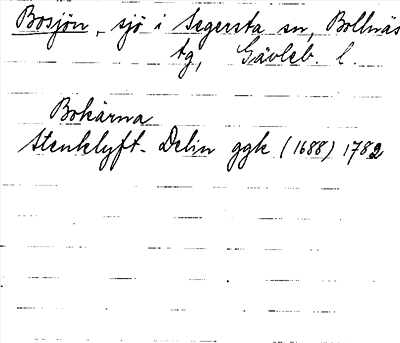 Bosjön, sjö i Segersta sn, Bollnäs
tg, Gävleb. l.
Bokärna
Stenklyft. Delin ggk (1688) 1782